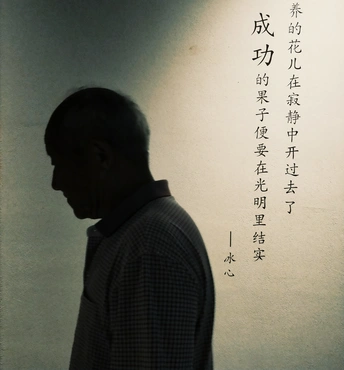 养的花儿在寂静中开过去了
成功的果子便要在光明里结实
——冰心